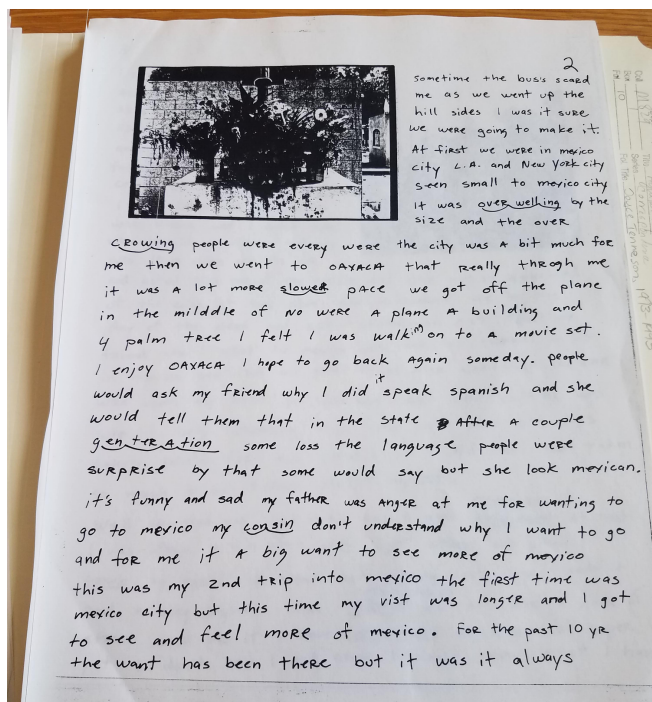 2
sometime the bus's scard
me as we went up the
hill sides I was it sure
we were going to make it.
At first we were in mexico
city L.A. and New York city
seen small to mexico city
it was over welling by the
size and the over
crowing people were every were the city was a bit much for
me then we went to OAXACA that really throgh me
it was a lot more slower pace we got off the plane
in the milddle of no were a plane a building and
4 palm tree I felt I was walkin on to a movie set.
I enjoy OAXACA I hope to go back again someday. people
would ask my friend why I did it speak spanish and she
would tell them that in the state After a couple
gentration some loss the language people were
surprise by that some would say but she look mexican.
it's funny and sad my father was anger at me for wanting to
go to mexico my consin don't understand why I want to go
and for me it a big want to see more of mexico
this was my 2nd trip into mexico the first time was
mexico city but this time my vist was longer and I got
to see and feel more of mexico. For the past 10 yr
the want has been there but it was it always